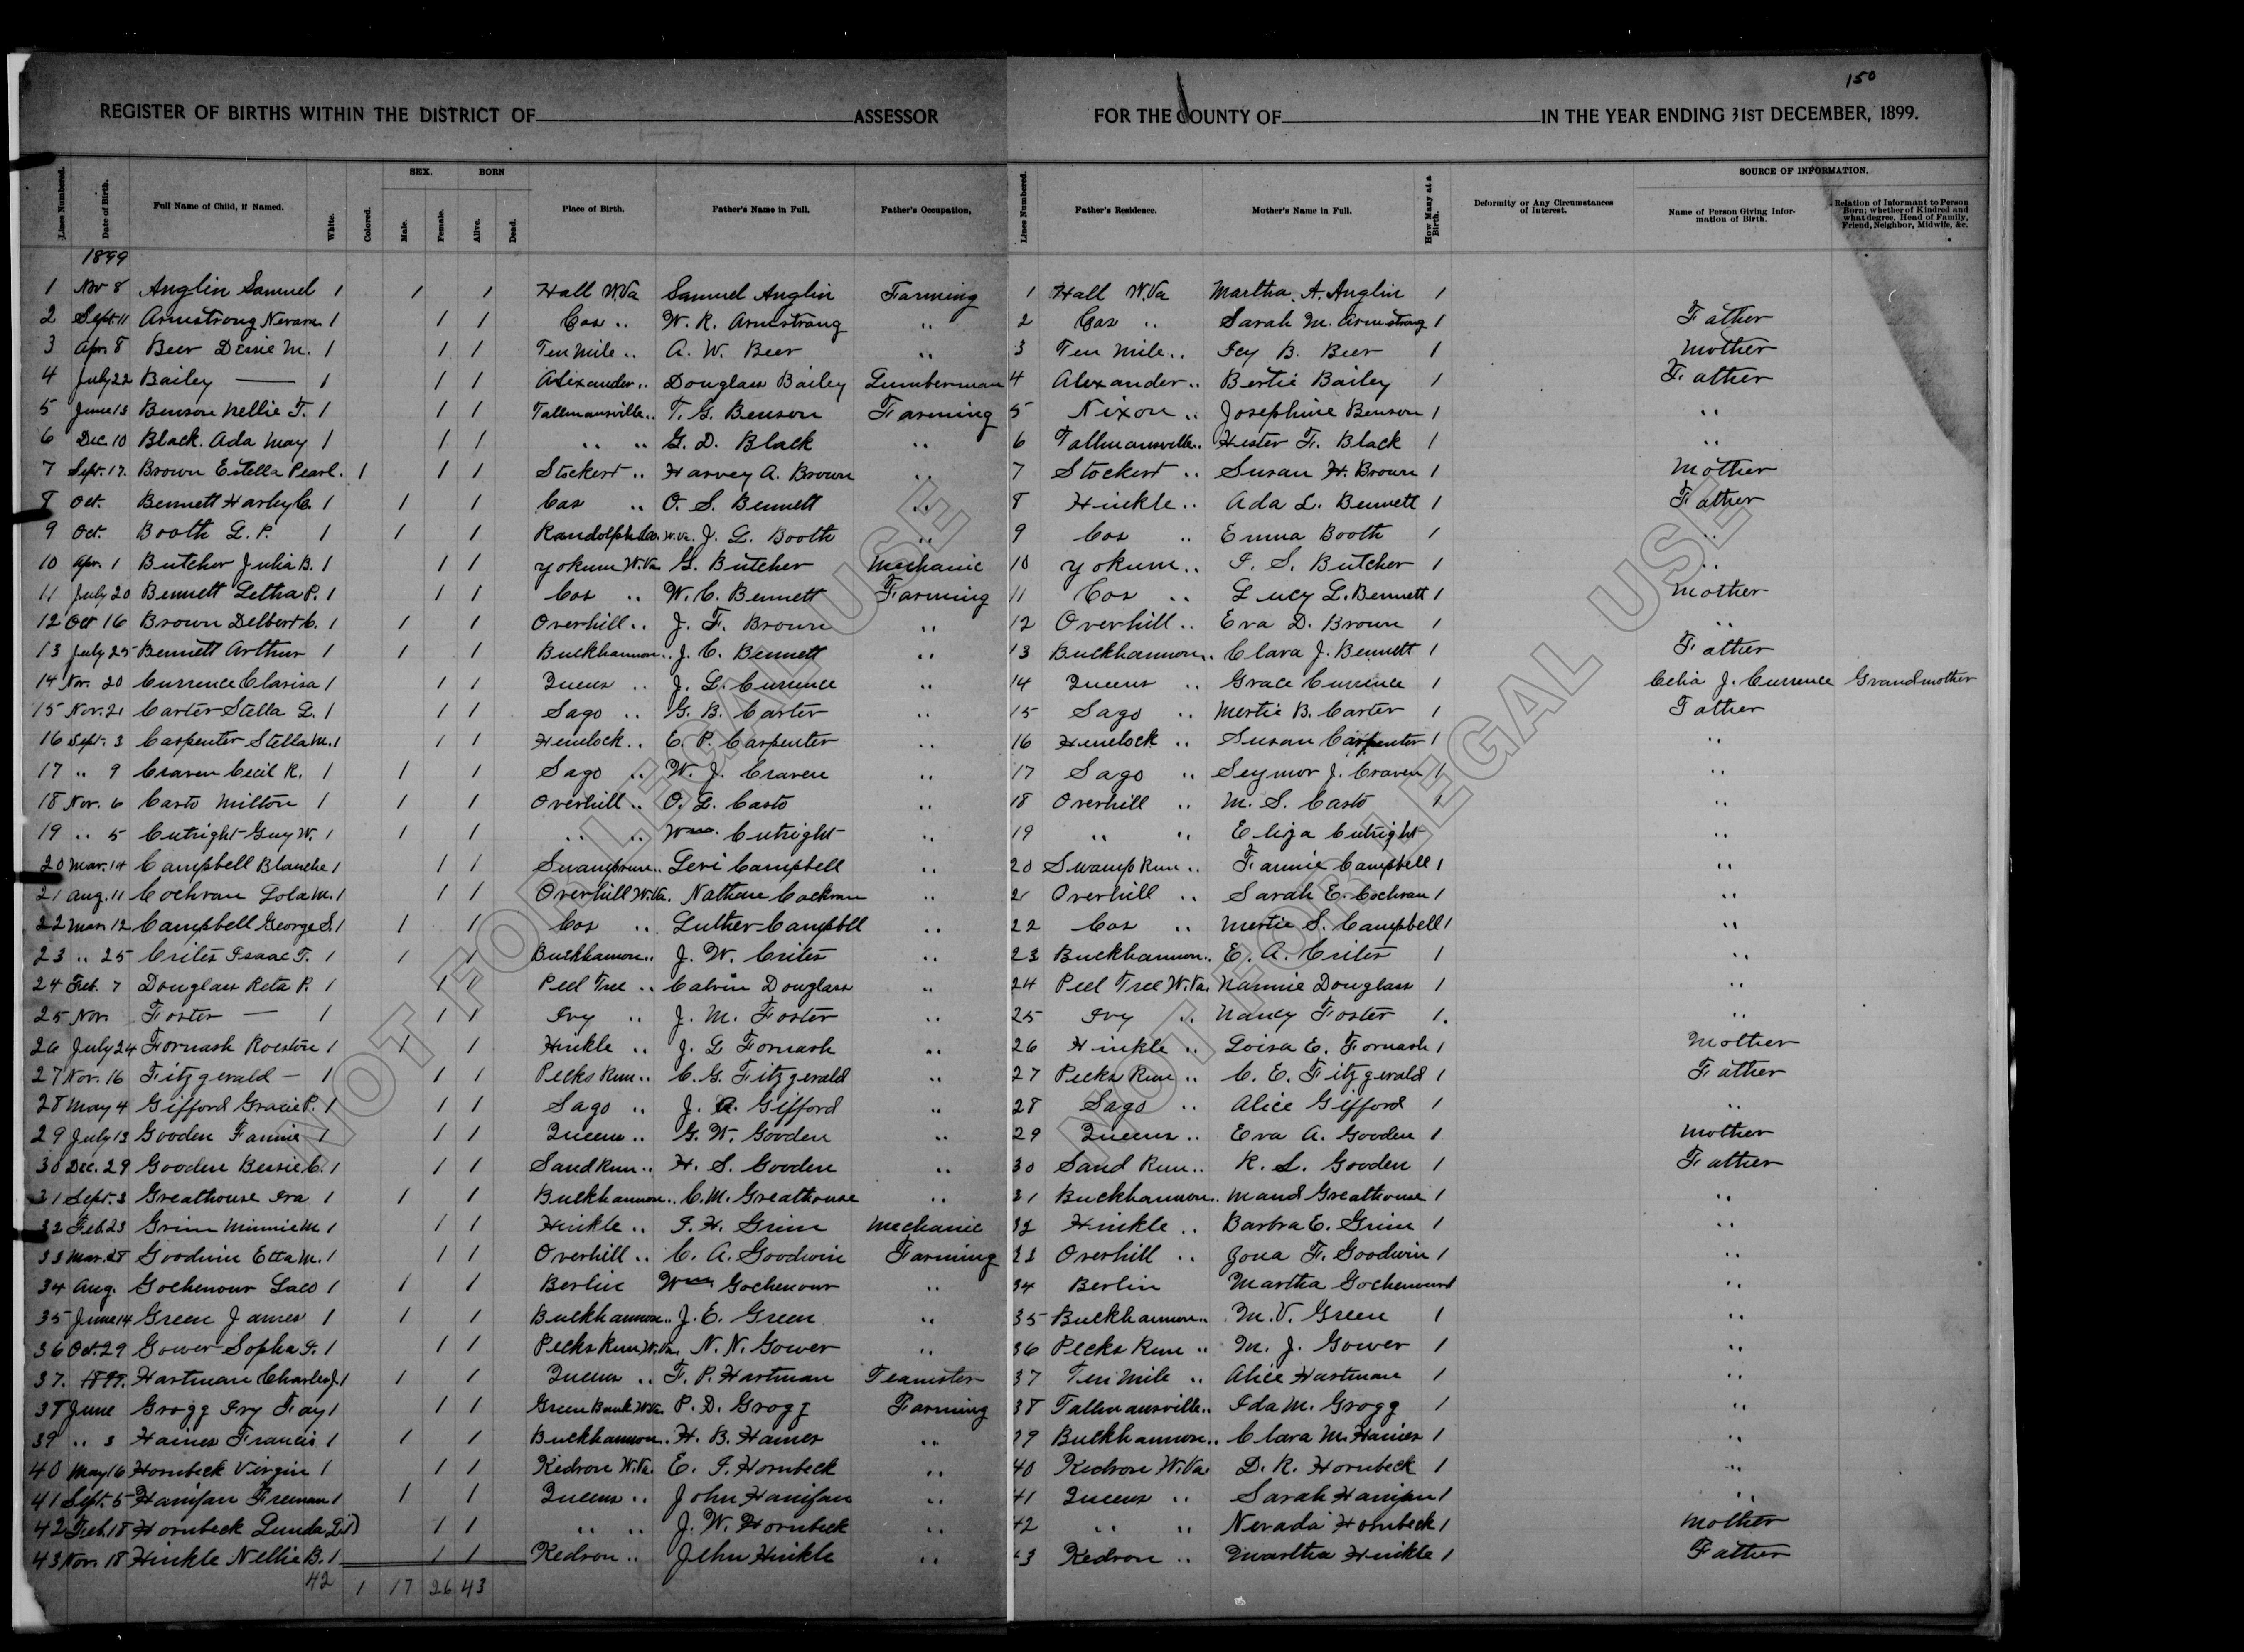 150
REGISTER OF BIRTHS WITHIN THE DISTRICT OF ASSESSOR FOR THE COUNTY OF IN THE YEAR ENDING 31ST DECEMBER, 1899.
Lines Numbered. Date of Birth. Full Name of Child, if Named. White. Colored. SEX. Male. Female. BORN Alive. Dead. Place of Birth. Father's Name in Full. Father's Occupation, Lines Numbered. Father's Residence. Mother's Name in Full. How Many at a Birth. Deformity or Any Circumstances of Interest. SOURCE OF INFORMATION. Name of Person Giving Information of Birth. Relation of Informant to Person Born; whether of Kindred and what degree, Head of Family, Friend, Neighbor, Midwife, &c.
1899
1 Nov 8 Anglin Samuel 1 1 1 Hall W.Va Samuel Anglin Farming 1 Hall W.Va Martha. A. Anglin 1
2 Sept. 11 Armstrong Nevara 1 1 1 Cox " W. R. Armstrong " 2 Cox " Sarah M. Armstrong 1 Father
3 Apr. 8 Beer Dessie M. 1 1 1 Ten Mile " A. W. Beer " 3 Ten Mile " Icy B. Beer 1 Mother
4 July 22 Bailey — 1 1 1 Alexander " Douglass Bailey Lumberman 4 Alexander " Bertie Bailey 1 Father
5 June 13 Benson Nellie F. 1 1 1 Tallmansville " T. G. Benson Farming 5 Nixon " Josephine Benson 1 "
6 Dec. 10 Black. Ada May 1 1 1 " " G. D. Black " 6 Tallmansville " Hester F. Black 1 "
7 Sept. 17. Brown Estella Pearl. 1 1 1 Stockert " Harvey A. Brown " 7 Stockert " Susan H. Brown 1 Mother
8 Oct. Bennett Harley C. 1 1 1 Cox " O. S. Bennett " 8 Hinkle " Ada L. Bennett 1 Father
9 Oct. Booth L. P. 1 1 1 Randolph Co. W.Va. J. L. Booth " 9 Cox " Emma Booth 1 "
10 Apr. 1 Butcher Julia B. 1 1 1 Yokum W.Va. G. Butcher Mechanic 10 Yokum " I. S. Butcher 1 "
11 July 20 Bennett Letha P. 1 1 1 Cox " W. C. Bennett Farming 11 Cox " Lucy L. Bennett 1 Mother
12 Oct 16 Brown Delbert C. 1 1 1 Overhill " J. F. Brown " 12 Overhill " Eva D. Brown 1 "
13 July 25 Bennett Arthur 1 1 1 Buckhannon " J. C. Bennett " 13 Buckhannon " Clara J. Bennett 1 Father
14 Nov. 20 Currence Clarisa 1 1 1 Queens " J. L. Currence " 14 Queens " Grace Currence 1 Celia J. Currence Grandmother
15 Nov. 21 Carter Stella L. 1 1 1 Sago " G. B. Carter " 15 Sago " Mertie B. Carter 1 Father
16 Sept. 3 Carpenter Stella M. 1 1 1 Hemlock " E. P. Carpenter " 16 Hemlock " Susan Carpenter 1 "
17 " 9 Craven Cecil R. 1 1 1 Sago " W. J. Craven " 17 Sago " Seymor J. Craven 1 "
18 Nov. 6 Casto Milton 1 1 1 Overhill " O. L. Casto " 18 Overhill " M. S. Casto 1 "
19 " 5 Cutright Guy W. 1 1 1 " " Wm. Cutright " 19 " " Eliza Cutright "
20 Mar. 14 Campbell Blanche 1 1 1 Swamp run " Levi Campbell " 20 Swamp Run " Fannie Campbell 1 "
21 Aug. 11 Cochran Lola M. 1 1 1 Overhill W.Va. Nathan Cockran " 21 Overhill " Sarah E. Cochran 1 "
22 Mar. 12 Campbell George S. 1 1 1 Cox " Luther Campbll " 22 Cox " Mertie S. Campbell 1 "
23 " 25 Crites Isaac T. 1 1 1 Buckhannon " J. W. Crites " 23 Buckhannon " E. A. Crites 1 "
24 Feb. 7 Douglass Reta P. 1 1 1 Peel Tree " Calvin Douglass " 24 Peel Tree W.Va. Nannie Douglass 1 "
25 Nov. Foster — 1 1 1 Ivy " J. M. Foster " 25 Ivy " Nancy Foster 1. "
26 July 24 Fornash Roeston 1 1 1 Hinkle " J. L Fornash " 26 Hinkle " Loisa E. Fornash 1 Mother
27 Nov. 16 Fitzgerald — 1 1 1 Pecks Run " C. G. Fitzgerald " 27 Pecks Run " C. E. Fitzgerald 1 Father
28 May 4 Gifford Gracie P. 1 1 1 Sago " J. A. Gifford " 28 Sago " Alice Gifford 1 "
29 July 13 Gooden Fannie 1 1 1 Queens " G. W. Gooden " 29 Queens " Eva A. Gooden 1 Mother
30 Dec. 29 Gooden Bessie C. 1 1 1 Sand Run " H. S. Gooden " 30 Sand Run " R. L. Gooden 1 Father
31 Sept. 3 Greathouse Ira 1 1 1 Buckhannon " C. M. Greathouse " 31 Buckhannon " Maud Greathouse 1 "
32 Feb. 23 Grim Minnie M. 1 1 1 Hinkle " I. H. Grim Mechanic 32 Hinkle " Barbra E. Grim 1 "
33 Mar. 28 Goodwin Etta M. 1 1 1 Overhill " C. A. Goodwin Farming 33 Overhill " Zona F. Goodwin 1 "
34 Aug. Gochenour Laco 1 1 1 Berlin Wm Gochenour " 34 Berlin Martha Gochenour 1 "
35 June 14 Green James 1 1 1 Buckhannon " J. E. Green " 35 Buckhannon " M. V. Green 1 "
36 Oct. 29 Gower Sopha F. 1 1 1 Pecks Run W.Va. N. N. Gower " 36 Pecks Run " M. J. Gower 1 "
37. 1899. Hartman Charles J. 1 1 1 Queens " F. P. Hartman Teamster 37 Ten Mile " Alice Hartman 1 "
38 June Grogg Ivy Fay 1 1 1 Green Bank W.Va. P. D. Grogg Farming 38 Tallmansville " Ida M. Grogg 1 "
39 " 3 Haines Francis 1 1 1 Buckhannon " H. B. Haines " 39 Buckhannon " Clara M. Haines 1 "
40 May 16 Hornbeck Virgin 1 1 1 Kedron W.Va. E. I. Hornbeck " 40 Kedron W.Va. D. R. Hornbeck 1 "
41 Sept. 5 Hanifan Freeman 1 1 1 Queens " John Hanifan " 41 Queens " Sarah Hanifan 1 "
42 Feb. 18 Hornbeck Lunda 1 1 1 " " J. W. Hornbeck " 42 " " Nevada Hornbeck 1 Mother
43 Nov. 18 Hinkle Nellie B. 1 1 1 Kedron " Jehu Hinkle " 43 Kedron " Martha Hinkle 1 Father
42 1 17 26 43
NOT FOR LEGAL USE
NOT FOR LEGAL USE